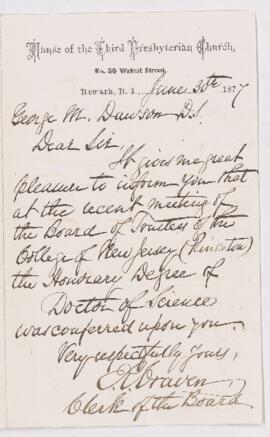 Manse of the Third Presbyterian Church,
No. 36 Walnut Street,
Newark, N. J. June 30th 1877
George M. Dawson D.S.
Dear Sir,
It gives me great
pleasure to inform you that
at the recent meeting of
the Board of Trustees of the
College of New Jersey (Princeton)
the Honorary Degree of
Doctor of Science
was conferred upon you.
Very respectfully Yours,
E. R. Craven
Clerk of the Board